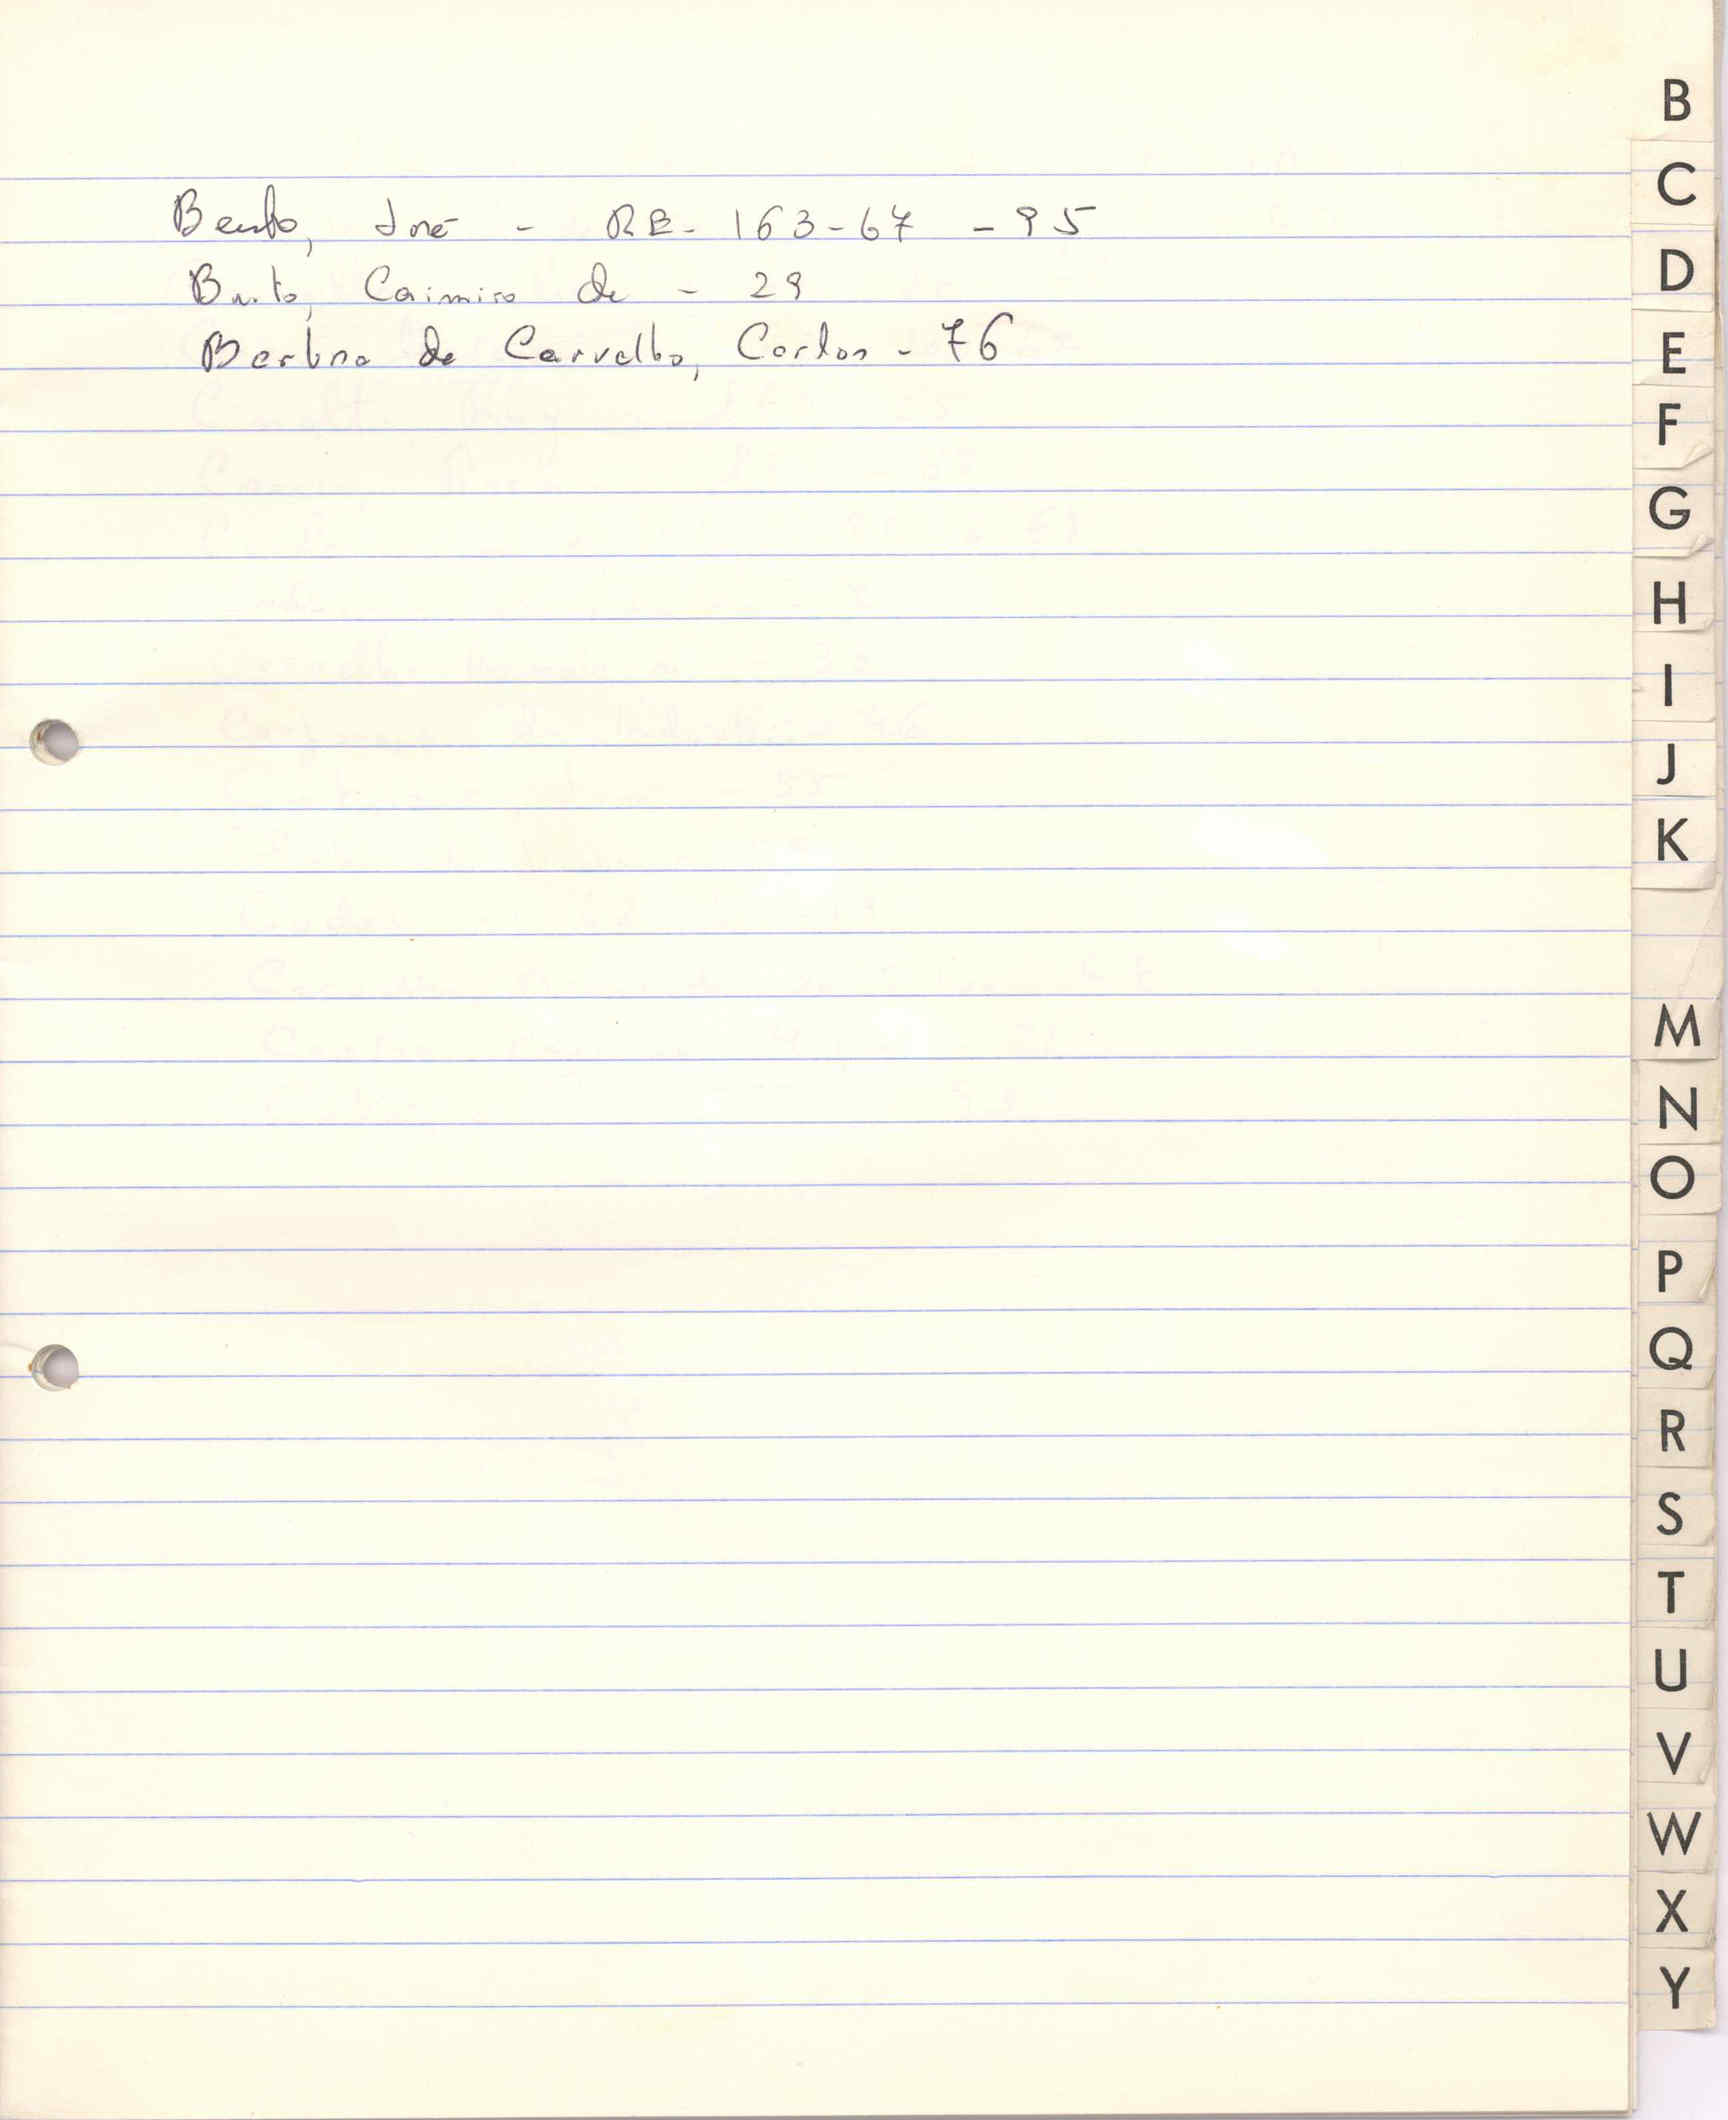 Bento, José - RE- 163-67 - 95
Brito, Casimiro de - 29
de Carvalho, Carlos - 76
B
C
D
E
F
G
H
I
J
K
M
N
O
P
Q
R
S
T
U
V
W
X
Y